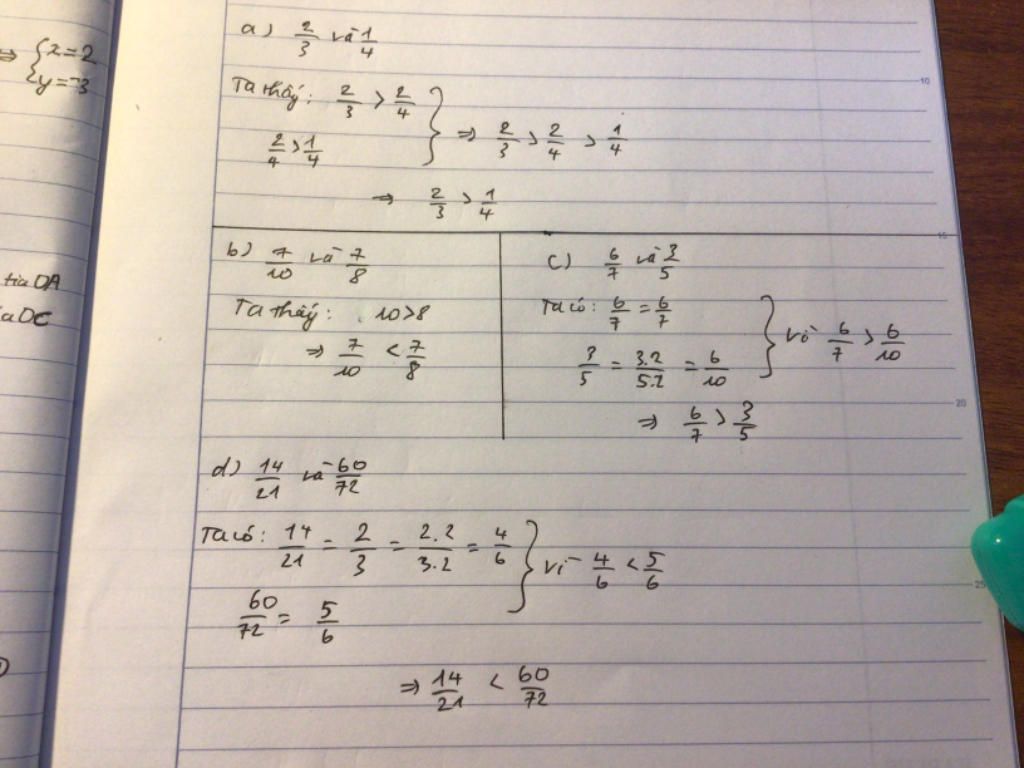 ⇒ { x = 2
y = -3
tia OA
OC
a) 2/3 và 1/4
Ta thấy: 2/3 > 2/4
2/4 > 1/4 } ⇒ 2/3 > 2/4 > 1/4
⇒ 2/3 > 1/4
b) 7/10 và 7/8
Ta thấy: 10>8
⇒ 7/10 < 7/8
c) 6/7 và 3/5
Ta có: 6/7 = 6/7
3/5 = 3.2/5.2 = 6/10 } Vì 6/7 > 6/10
⇒ 6/7 > 3/5
d) 14/21 và 60/72
Ta có: 14/21 = 2/3 = 2.2/3.2 = 4/6
60/72 = 5/6 } Vì 4/6 < 5/6
⇒ 14/21 < 60/72
10
15
20
25